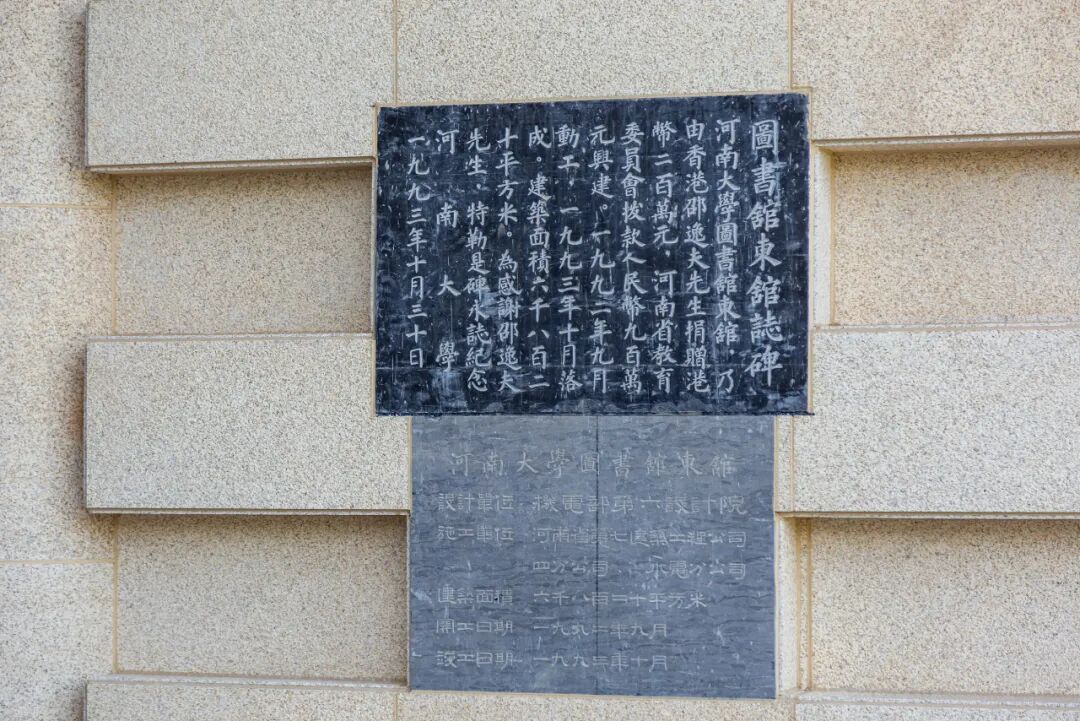 圖書舘東舘誌碑
河南大學圖書舘東舘，乃
由香港邵逸夫先生捐贈港
幣二百萬元，河南省教育
委員會撥款人民幣九百萬
元興建。一九九二年九月
動工，一九九三年十月落
成。建築面積六千八百二
十平方米。為感謝邵逸夫
先生，特勒是碑永誌紀念
河南大學
一九九三年十月三十日
河南大學圖書舘東舘
設計單位 機電部第六設計院
施工單位 河南省第七建築工程公司
四分公司、水電分公司
建築面積 六千八百二十平方米
開工日期 一九九二年九月
竣工日期 一九九三年十月